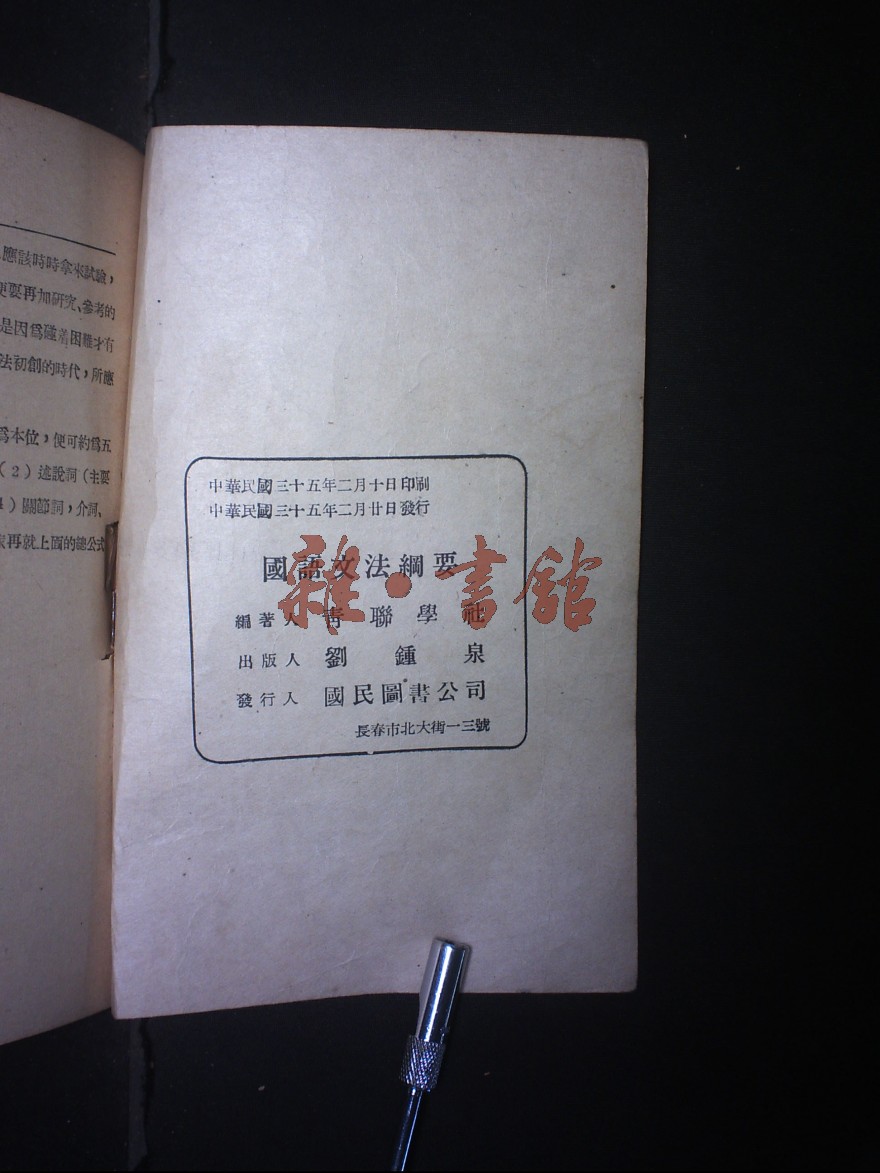 應該時時拿來試驗,
便要再加研究、參考的
是因爲碰着困難才有
法初創的時代,所應
爲本位,便可約爲五
(2)述說詞(主要
)關節詞,介詞、
再就上面的總公式
中華民國三十五年二月十日印刷
中華民國三十五年二月廿日發行
國語文法綱要
編著人 青聯學社
出版人 劉鍾泉
發行人 國民圖書公司
長春市北大街一三號
雜·書館